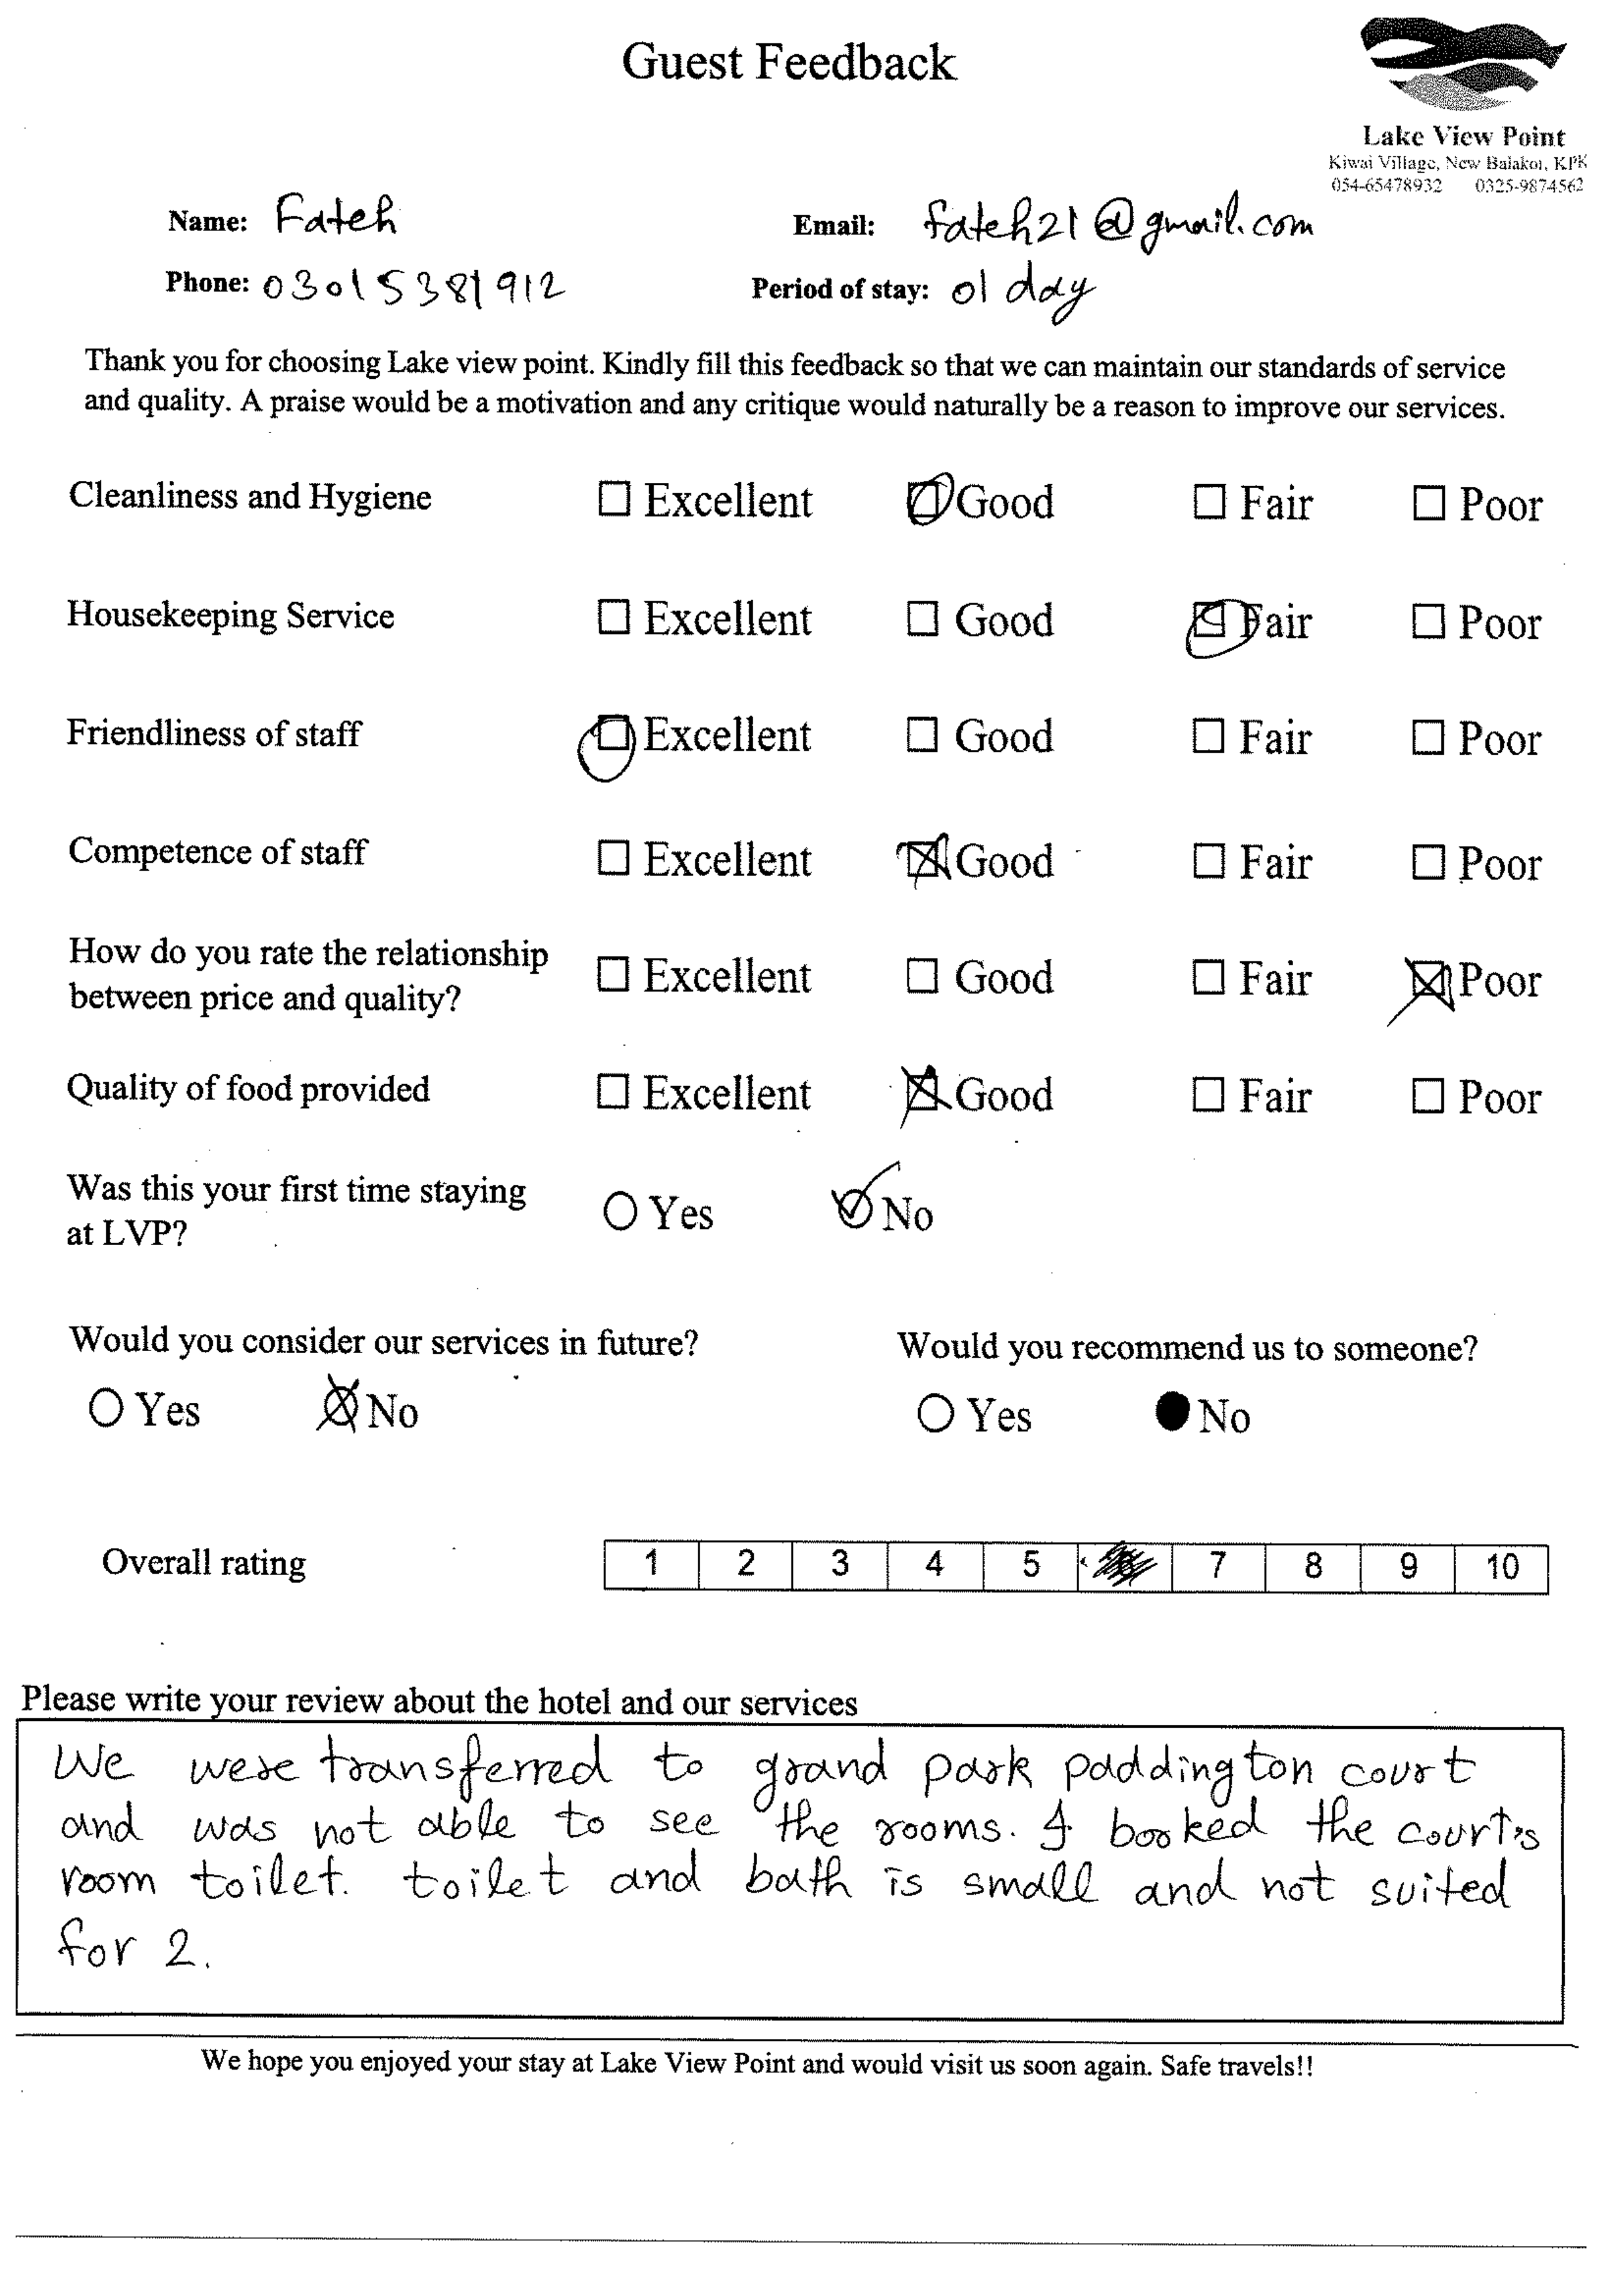 Guest Feedback
Lake View Point
Kiwai Village, New Balakot, KPK
054-65478932 0325-9874562
Name: Fateh Email: fateh21@gmail.com
Phone: 03015381912 Period of stay: 01 day
Thank you for choosing Lake view point. Kindly fill this feedback so that we can maintain our standards of service
and quality. A praise would be a motivation and any critique would naturally be a reason to improve our services.
Cleanliness and Hygiene Excellent Good Fair Poor
Housekeeping Service Excellent Good Fair Poor
Friendliness of staff Excellent Good Fair Poor
Competence of staff Excellent Good Fair Poor
How do you rate the relationship
between price and quality? Excellent Good Fair Poor
Quality of food provided Excellent Good Fair Poor
Was this your first time staying
at LVP? Yes No
Would you consider our services in future? Would you recommend us to someone?
Yes No Yes No
Overall rating 1 2 3 4 5 7 8 9 10
Please write your review about the hotel and our services
We were transferred to grand park paddington court
and was not able to see the rooms. I booked the court's
room toilet. toilet and bath is small and not suited
for 2.
We hope you enjoyed your stay at Lake View Point and would visit us soon again. Safe travels!!